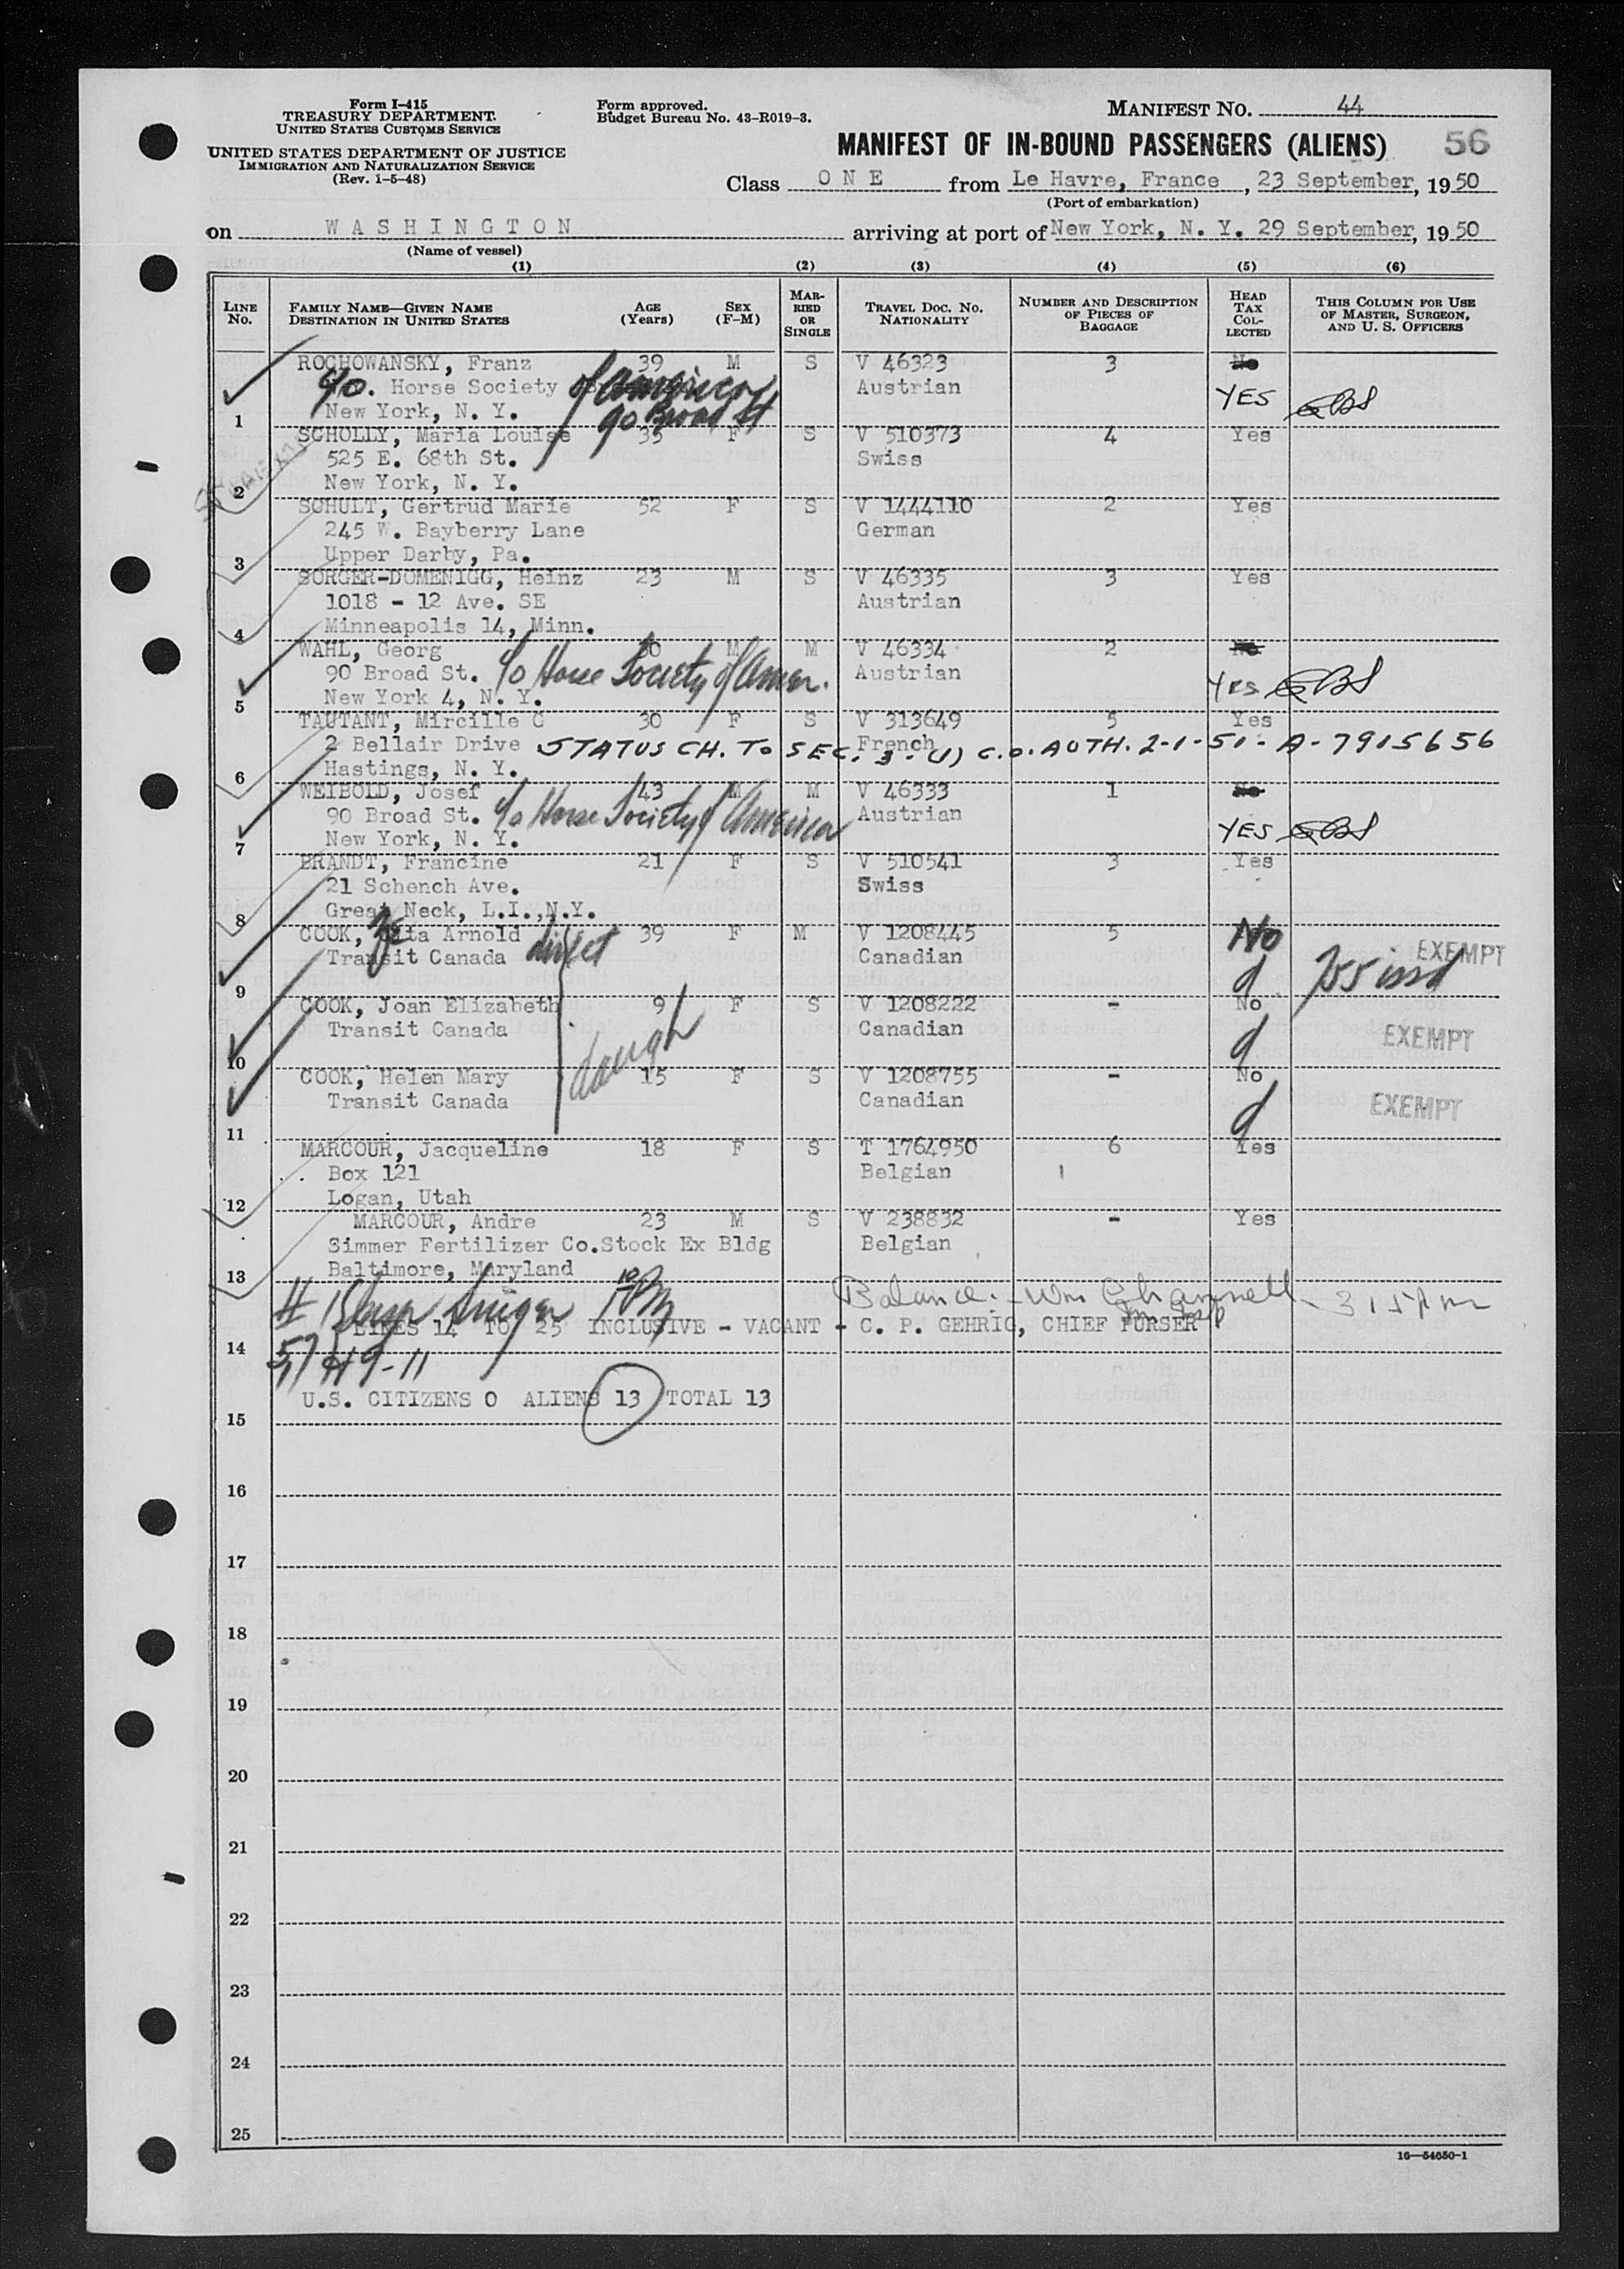 Form I-415
TREASURY DEPARTMENT
UNITED STATES CUSTOMS SERVICE
UNITED STATES DEPARTMENT OF JUSTICE
IMMIGRATION AND NATURALIZATION SERVICE
(Rev. 1-5-48)
Form approved.
Budget Bureau No. 43-R019-3.
MANIFEST NO. 44
MANIFEST OF IN-BOUND PASSENGERS (ALIENS) 56
Class ONE from Le Havre, France, 23 September, 1950
(Port of embarkation)
on WASHINGTON arriving at port of New York, N. Y. 29 September, 1950
(Name of vessel)
(1) (2) (3) (4) (5) (6)
LINE NO. FAMILY NAME—GIVEN NAME DESTINATION IN UNITED STATES AGE (Years) SEX (F-M) MARRIED OR SINGLE TRAVEL DOC. NO. NATIONALITY NUMBER AND DESCRIPTION OF PIECES OF BAGGAGE HEAD TAX COLLECTED THIS COLUMN FOR USE OF MASTER, SURGEON, AND U. S. OFFICERS
ROCHOWANSKY, Franz 39 M S V 46323 3 No
c/o. Horse Society of America Austrian YES
New York, N. Y. 90 Broad St
1
SCHOLLY, Maria Louise 35 F S V 510373 4 Yes
525 E. 68th St. Swiss
New York, N. Y.
2
SCHULT, Gertrud Marie 52 F S V 1444110 2 Yes
245 W. Bayberry Lane German
Upper Darby, Pa.
3
SORGER-DOMENIGG, Heinz 23 M S V 46335 3 Yes
1018 - 12 Ave. SE Austrian
Minneapolis 14, Minn.
4
WAHL, Georg 30 M M V 46334 2 No
90 Broad St. c/o Horse Society of Amer. Austrian YES
New York 4, N. Y.
5
TAUTANT, Mircille C 30 F S V 313649 5 Yes
2 Bellair Drive French
STATUS CH. TO SEC. 3-(1) C.O. AUTH. 2-1-51-A-7915656
Hastings, N. Y.
6
WEIBOLD, Josef 43 M M V 46333 1 No
90 Broad St. c/o Horse Society of America Austrian
New York, N. Y. YES
7
BRANDT, Francine 21 F S V 510541 3 Yes
21 Schench Ave. Swiss
Great Neck, L.I.,N.Y.
8
COOK, Zita Arnold 39 F M V 1208445 5 No EXEMPT
Transit Canada direct Canadian
9
COOK, Joan Elizabeth 9 F S V 1208222 - No
Transit Canada Canadian EXEMPT
daugh
10
COOK, Helen Mary 15 F S V 1208755 - No
Transit Canada Canadian EXEMPT
11
MARCOUR, Jacqueline 18 F S T 1764950 6 Yes
Box 121 Belgian
Logan, Utah
12
MARCOUR, Andre 23 M S V 238832 - Yes
Simmer Fertilizer Co.Stock Ex Bldg Belgian
Baltimore, Maryland
13
Balance - Wm Channell - 315 PM
LINES 14 TO 25 INCLUSIVE - VACANT - C. P. GEHRIG, CHIEF PURSER
14
#9-11
U.S. CITIZENS 0 ALIENS 13 TOTAL 13
15
16
17
18
19
20
21
22
23
24
25
16—54650-1